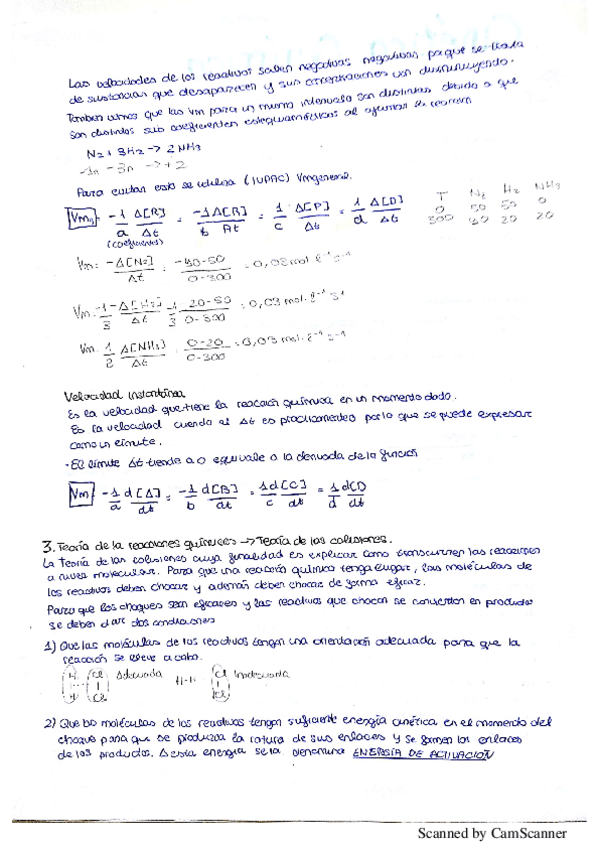 Las velocidades de los reactivos salen negativas negativas porque se trata
de sustancias que desaparecen y sus concentraciones van disminuyendo.
Tambien vemos que las Vm para un mismo intervalo son distintas debido a que
son distintos sus coeficientes estequiométricos al ajustar la reacción
N2 + 3H2 -> 2NH3
-1n - 3n -> +2
Para evitar esto se utiliza (IUPAC) Vmgeneral.
Vmg = -1/a Δ[A]/Δt = -1/b Δ[B]/Δt = 1/c Δ[P]/Δt = 1/d Δ[D]/Δt
(coeficientes)
T N2 H2 NH3
0 50 50 0
300 40 20 20
Vm = -Δ[N2]/Δt = -40-50/0-300 = 0,03 mol·l⁻¹ s⁻¹
Vm = -1/3 -Δ[H2]/Δt = -1/3 20-50/0-300 = 0,03 mol·l⁻¹ s⁻¹
Vm = 1/2 Δ[NH3]/Δt = 0-20/0-300 = 0,03 mol·l⁻¹ s⁻¹
Velocidad instantánea
Es la velocidad que tiene la reacción química en un momento dado.
Es la velocidad cuando el Δt es practicamente por lo que se puede expresar
como un límite.
- El límite Δt tiende a 0 equivale a la derivada de la función
Vm = -1/a d[A]/dt = -1/b d[B]/dt = 1/c d[C]/dt = 1/d d[D]/dt
3. Teoría de la reacciones químicas -> Teoría de las colisiones.
La teoría de las colisiones cuya finalidad es explicar como transcurren las reacciones
a nivel molecular. Para que una reacción química tenga lugar, las moléculas de
los reactivos deben chocar y además deben chocar de forma eficaz.
Para que los choques sean eficaces y los reactivos que chocan se conviertan en productos
se deben dar dos condiciones
1) Que las moléculas de los reactivos tengan una orientación adecuada para que la
reacción se lleve a cabo.
H Cl Adecuada H-H Cl Inadecuada
H Cl Cl
2) Que las moléculas de los reactivos tengan suficiente energía cinética en el momento del
choque para que se produzca la rotura de sus enlaces y se formen los enlaces
de los productos. A esta energía se la denomina ENERGÍA DE ACTIVACIÓN
Scanned by CamScanner